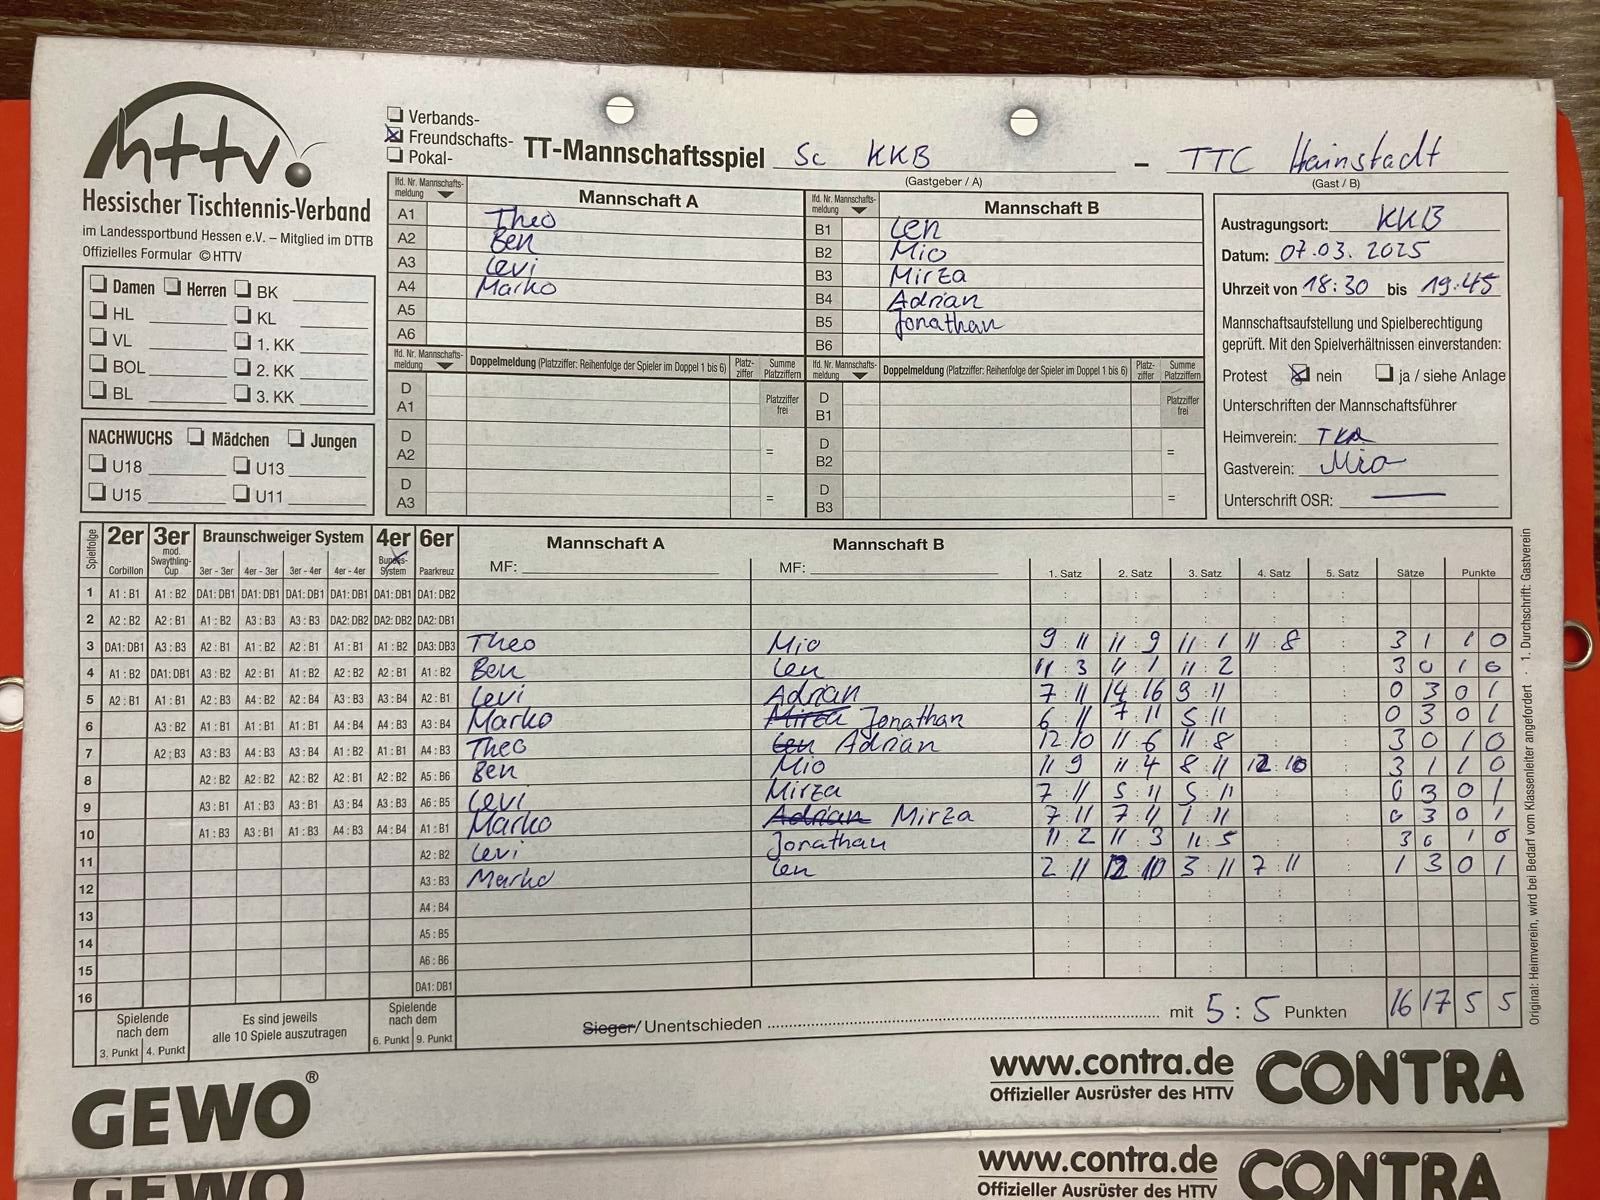 httv.
Hessischer Tischtennis-Verband
im Landessportbund Hessen e.V. – Mitglied im DTTB
Offizielles Formular © HTTV
Verbands-
Freundschafts-
Pokal-
TT-Mannschaftsspiel Sc KKB – TTC Hainstadt
(Gastgeber / A) (Gast / B)
Damen Herren BK
HL KL
VL 1. KK
BOL 2. KK
BL 3. KK
NACHWUCHS Mädchen Jungen
U18 U13
U15 U11
lfd. Nr. Mannschafts-meldung Mannschaft A
A1 Theo
A2 Ben
A3 Levi
A4 Marko
A5
A6
lfd. Nr. Mannschafts-meldung Mannschaft B
B1 Len
B2 Mio
B3 Mirza
B4 Adrian
B5 Jonathan
B6
lfd. Nr. Mannschafts-meldung Doppelmeldung (Platzziffer: Reihenfolge der Spieler im Doppel 1 bis 6) Platz-ziffer Summe Platzziffern
D A1 Platzziffer frei
D A2 =
D A3 =
lfd. Nr. Mannschafts-meldung Doppelmeldung (Platzziffer: Reihenfolge der Spieler im Doppel 1 bis 6) Platz-ziffer Summe Platzziffern
D B1 Platzziffer frei
D B2 =
D B3 =
Austragungsort: KKB
Datum: 07.03.2025
Uhrzeit von 18:30 bis 19:45
Mannschaftsaufstellung und Spielberechtigung
geprüft. Mit den Spielverhältnissen einverstanden:
Protest nein ja / siehe Anlage
Unterschriften der Mannschaftsführer
Heimverein:
Gastverein: Mio
Unterschrift OSR:
Spielfolge 2er Corbillon 3er mod. Swaythling-Cup Braunschweiger System 3er - 3er 4er - 3er 3er - 4er 4er - 4er 4er Bundes-System 6er Paarkreuz Mannschaft A MF: Mannschaft B MF: 1. Satz 2. Satz 3. Satz 4. Satz 5. Satz Sätze Punkte
1 A1 : B1 A1 : B2 DA1: DB1 DA1: DB1 DA1: DB1 DA1: DB1 DA1: DB1 DA1: DB2
2 A2 : B2 A2 : B1 A1 : B2 A3 : B3 A3 : B3 DA2: DB2 DA2: DB2 DA2: DB1
3 DA1: DB1 A3 : B3 A2 : B1 A1 : B2 A2 : B1 A1 : B1 A1 : B2 DA3: DB3 Theo Mio 9 : 11 11 : 9 11 : 1 11 : 8 3 1 1 0
4 A1 : B2 DA1: DB1 A3 : B2 A2 : B1 A1 : B2 A2 : B2 A2 : B1 A1 : B2 Ben Len 11 : 3 11 : 1 11 : 2 3 0 1 0
5 A2 : B1 A1 : B1 A2 : B3 A4 : B2 A2 : B4 A3 : B3 A3 : B4 A2 : B1 Levi Adrian 7 : 11 14 : 16 9 : 11 0 3 0 1
6 A3 : B2 A1 : B1 A1 : B1 A1 : B1 A4 : B4 A4 : B3 A3 : B4 Marko Mirza Jonathan 6 : 11 7 : 11 5 : 11 0 3 0 1
7 A2 : B3 A3 : B3 A4 : B3 A3 : B4 A1 : B2 A1 : B1 A4 : B3 Theo Len Adrian 12:10 11 : 6 11 : 8 3 0 1 0
8 A2 : B2 A2 : B2 A2 : B2 A2 : B1 A2 : B2 A5 : B6 Ben Mio 11 : 9 11 : 4 8 : 11 12 : 10 3 1 1 0
9 A3 : B1 A1 : B3 A3 : B1 A3 : B4 A3 : B3 A6 : B5 Levi Mirza 7 : 11 5 : 11 5 : 11 0 3 0 1
10 A1 : B3 A3 : B1 A1 : B3 A4 : B3 A4 : B4 A1 : B1 Marko Adrian Mirza 7:11 7 : 11 1 : 11 0 3 0 1
11 A2 : B2 Levi Jonathan 11 : 2 11 : 3 11 : 5 3 0 1 0
12 A3 : B3 Marko Len 2 : 11 12 : 10 3 : 11 7 : 11 1 3 0 1
13 A4 : B4
14 A5 : B5
15 A6 : B6
16 DA1: DB1
Spielende nach dem 3. Punkt 4. Punkt
Es sind jeweils alle 10 Spiele auszutragen
Spielende nach dem 6. Punkt 9. Punkt
Sieger / Unentschieden mit 5 : 5 Punkten 16 17 5 5
Original: Heimverein, wird bei Bedarf vom Klassenleiter angefordert · 1. Durchschrift: Gastverein
GEWO®
www.contra.de
Offizieller Ausrüster des HTTV
CONTRA
GEWO
www.contra.de
Offizieller Ausrüster des HTTV
CONTRA